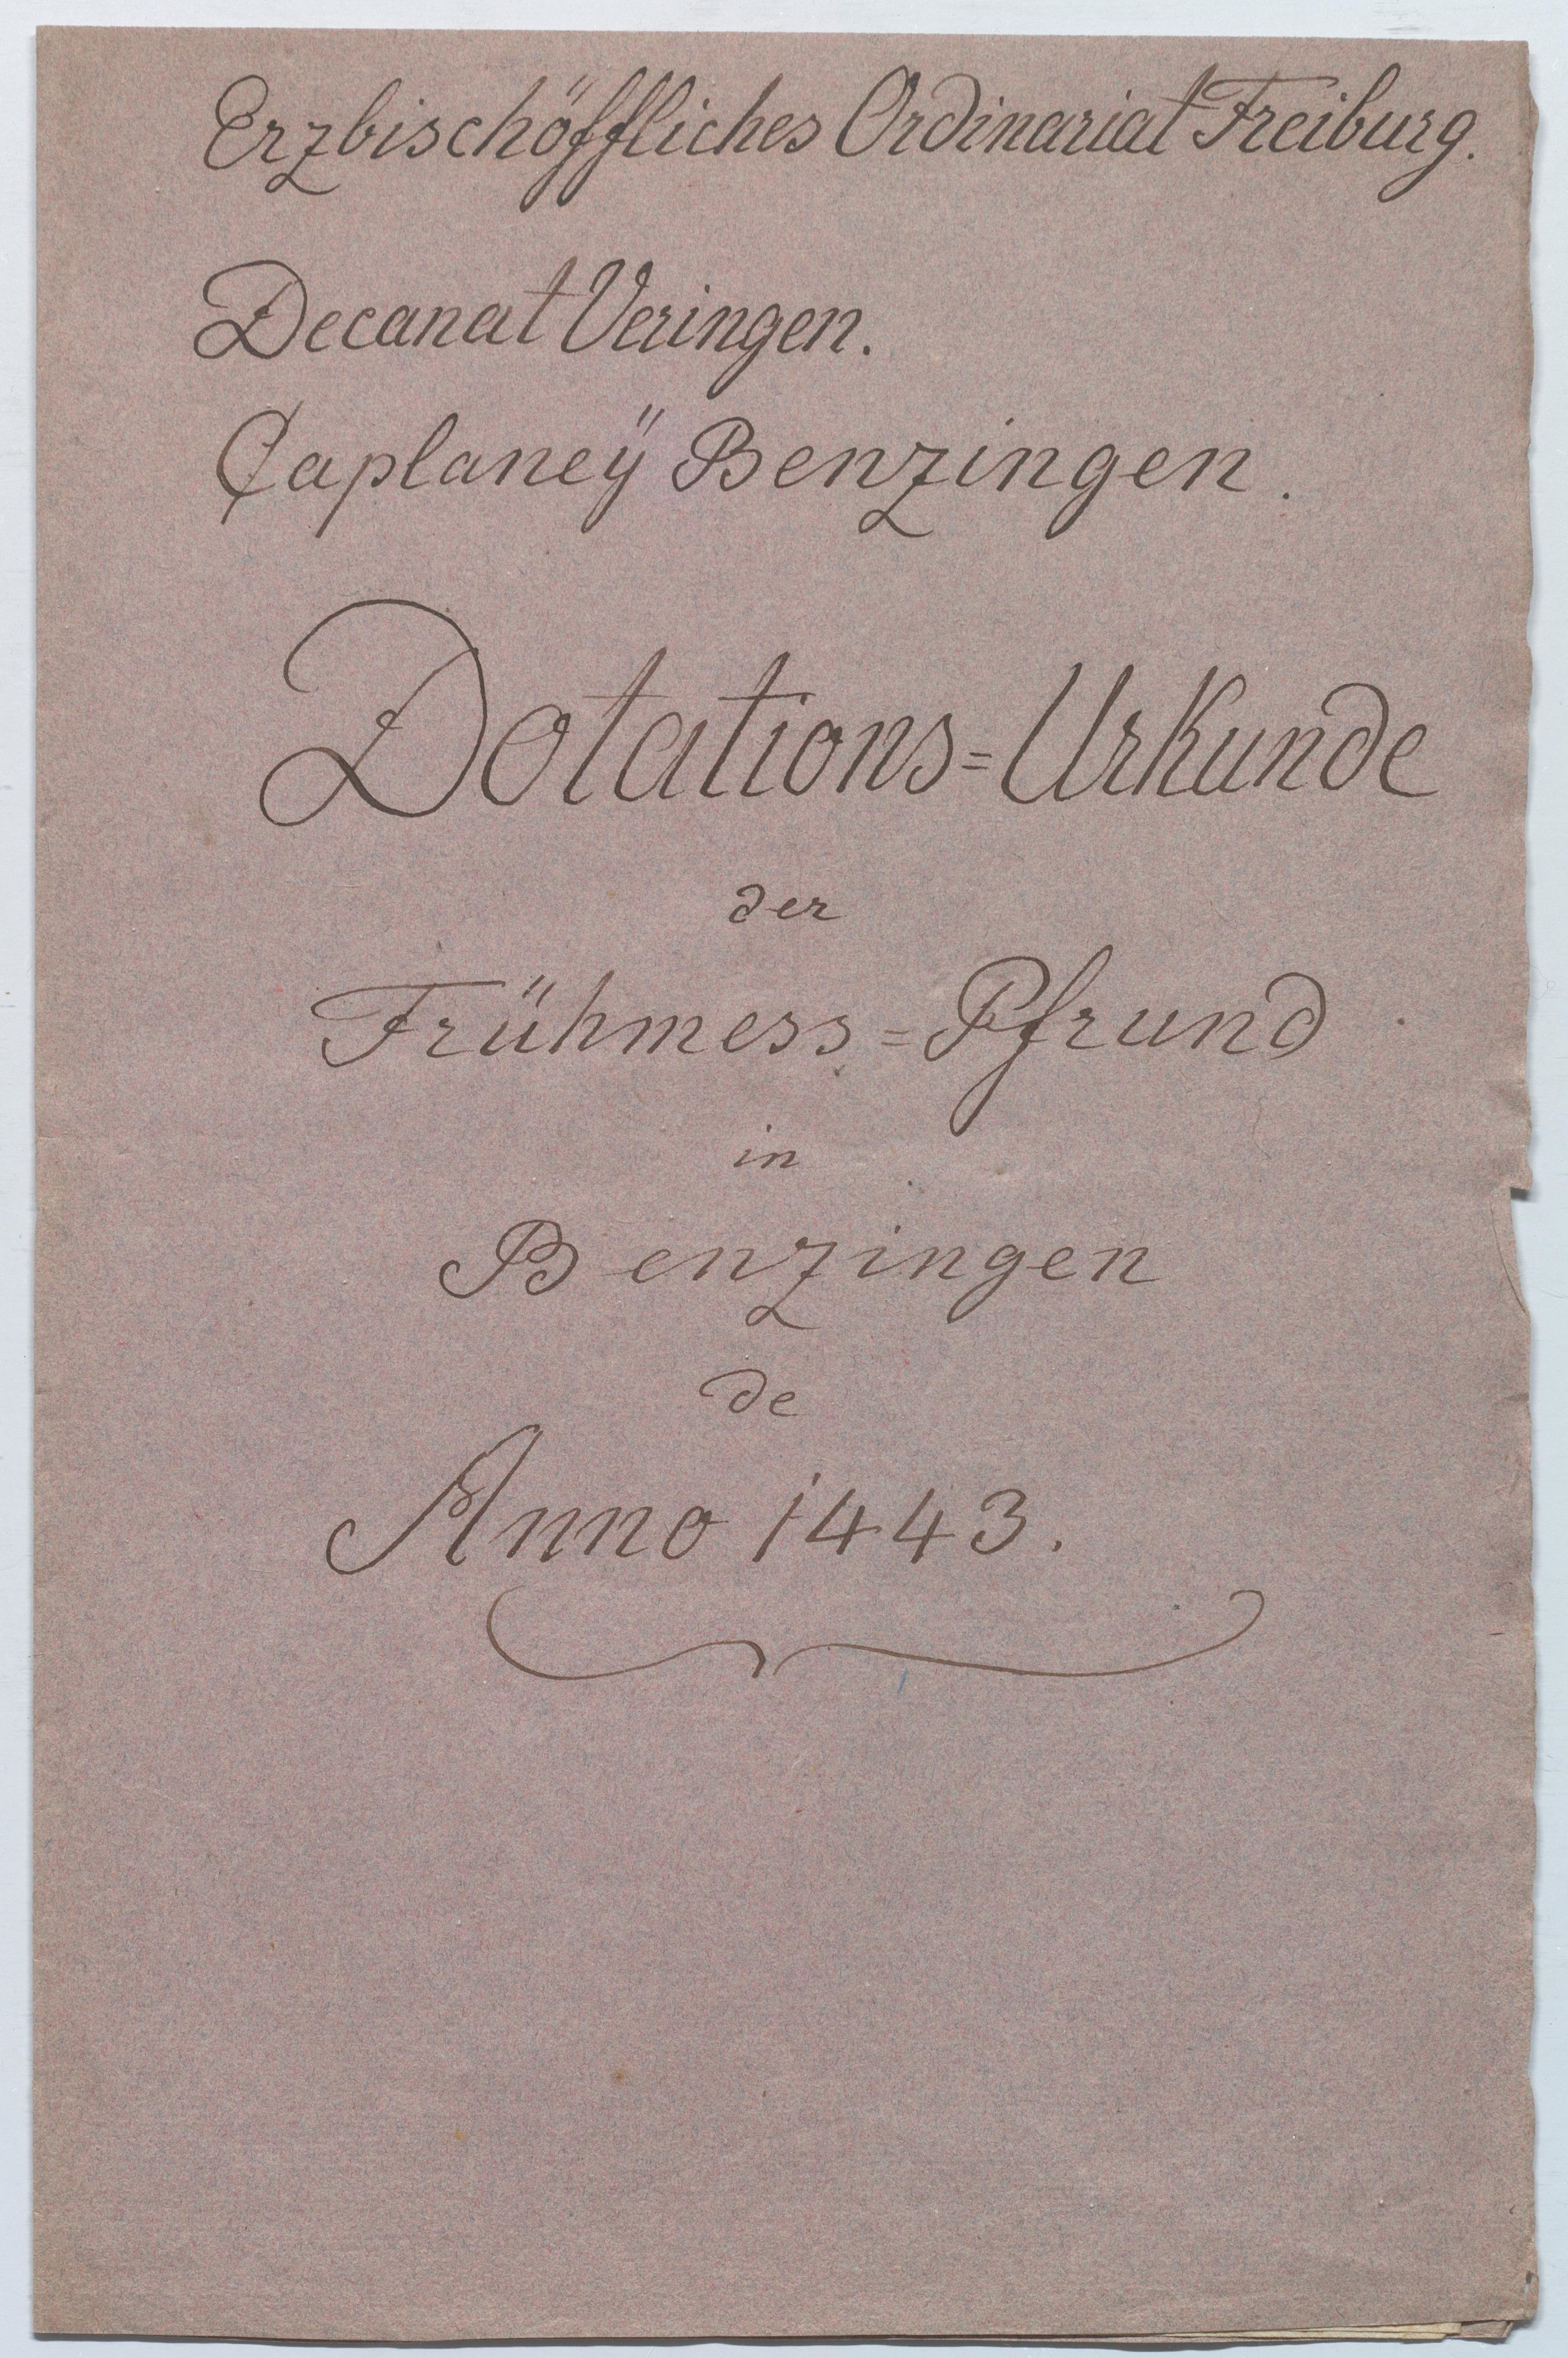 Erzbischöffliches Ordinariat Freiburg.
Decanat Veringen.
Caplaneÿ Benzingen.
Dotations=Urkunde
der
Frühmess=Pfrund
in
Benzingen
de
Anno 1443.